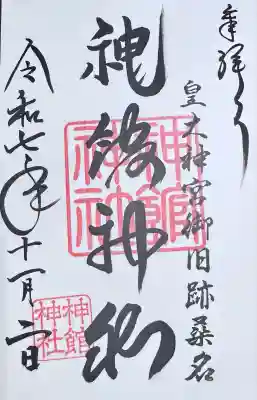 奉拝
皇大神宮御旧跡桑名
神館神社
令和七年十一月二日
神館神社
神館神社